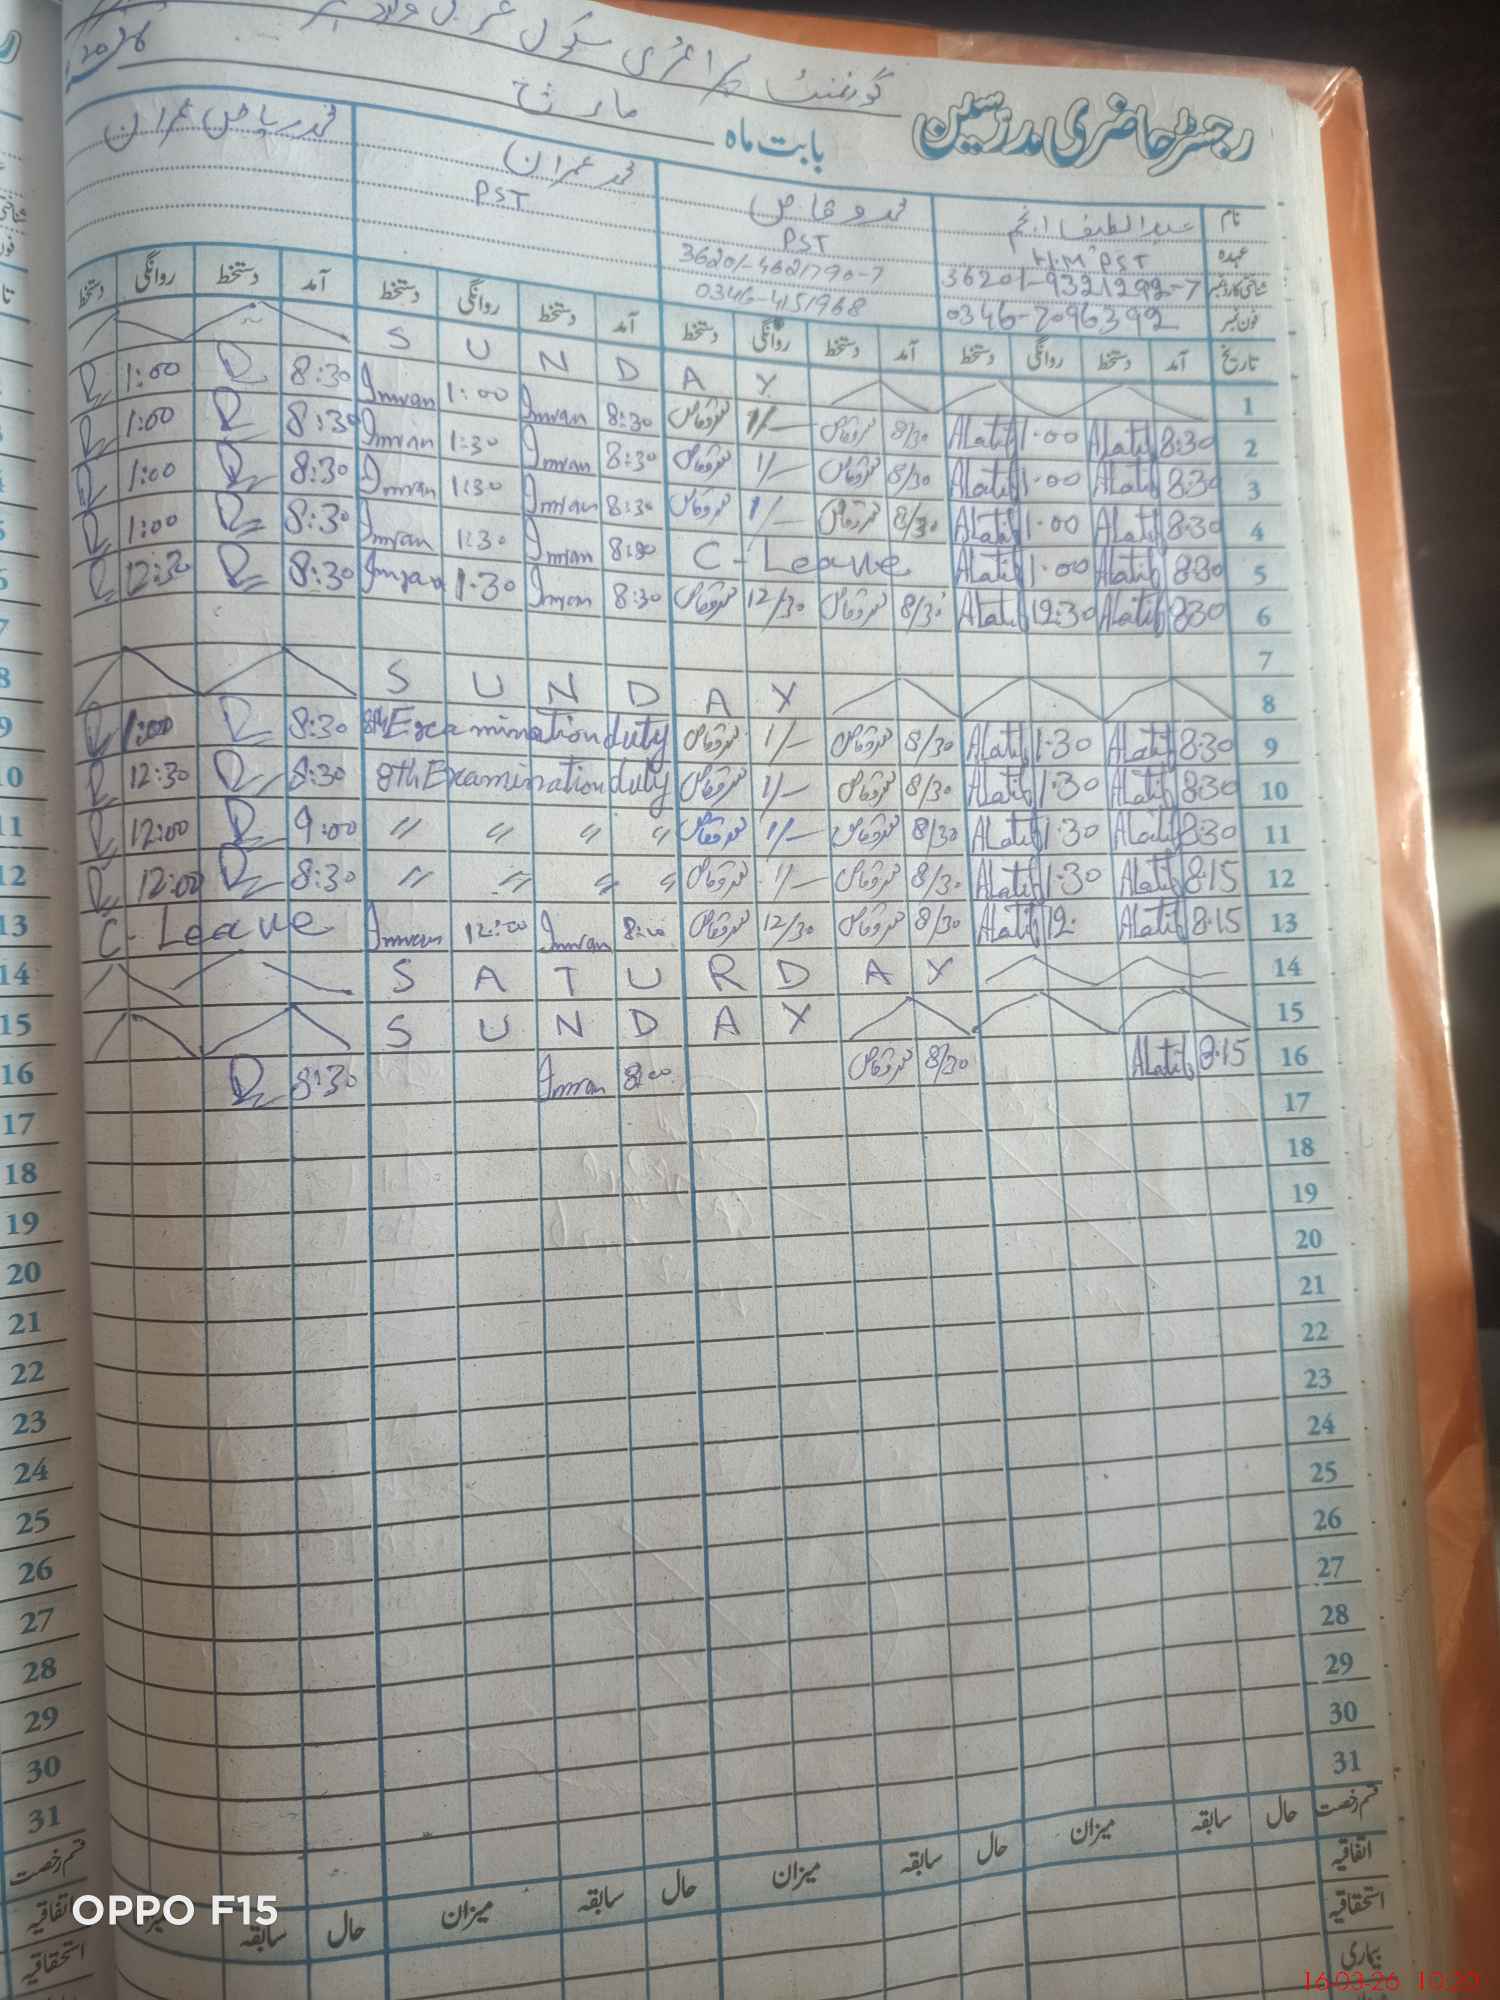 گورنمنٹ پرائمری سکول
2026
رجسٹر حاضری مدرسین
بابت ماہ مارچ
نام عبدالطیف انجم محمد وقاص محمد عمران محمد ریاض عمران
عہدہ H.M PST PST PST
شناختی کارڈ نمبر 36201-9321292-7 36201-4621790-7
فون نمبر 0346-7096392 0346-4151968
تاریخ آمد دستخط روانگی دستخط آمد دستخط روانگی دستخط آمد دستخط روانگی دستخط آمد دستخط روانگی دستخط
1 S U N D A Y
2 8:30 ALatif 1:00 ALatif 8/30 محمد وقاص 1/— محمد وقاص 8:30 Imran 1:00 Imran 8:30 1:00
3 8:30 ALatif 1:00 ALatif 8/30 محمد وقاص 1/— محمد وقاص 8:30 Imran 1:30 Imran 8:30 1:00
4 8:30 ALatif 1:00 ALatif 8/30 محمد وقاص 1/— محمد وقاص 8:30 Imran 1:30 Imran 8:30 1:00
5 8:30 ALatif 1:00 ALatif C - Leave 8:30 Imran 1:30 Imran 8:30 1:00
6 8:30 ALatif 12:30 ALatif 8/30 محمد وقاص 12/30 محمد وقاص 8:30 Imran 1:30 Imran 8:30 12:30
7
8 S U N D A Y
9 8:30 ALatif 1:30 ALatif 8/30 محمد وقاص 1/— محمد وقاص 8th Examination duty 8:30 1:00
10 8:30 ALatif 1:30 ALatif 8/30 محمد وقاص 1/— محمد وقاص 8th Examination duty 8:30 12:30
11 8:30 ALatif 1:30 ALatif 8/30 محمد وقاص 1/— محمد وقاص " " " " 9:00 12:00
12 8:15 ALatif 1:30 ALatif 8/30 محمد وقاص 1/— محمد وقاص " " " " 8:30 12:00
13 8:15 ALatif 12: ALatif 8/30 محمد وقاص 12/30 محمد وقاص 8:00 Imran 12:00 Imran C - Leave
14 S A T U R D A Y
15 S U N D A Y
16 8:15 ALatif 8/30 محمد وقاص 8:00 Imran 8:30
17
18
19
20
21
22
23
24
25
26
27
28
29
30
31
قسم رخصت حال سابقہ میزان حال سابقہ میزان حال سابقہ میزان حال سابقہ
اتفاقیہ
استحقاقیہ
بیماری
9
10
11
12
13
14
15
16
17
18
19
20
21
22
23
24
25
26
27
28
29
30
31
قسم رخصت
اتفاقیہ
استحقاقیہ
OPPO F15
16-03-26 10:20